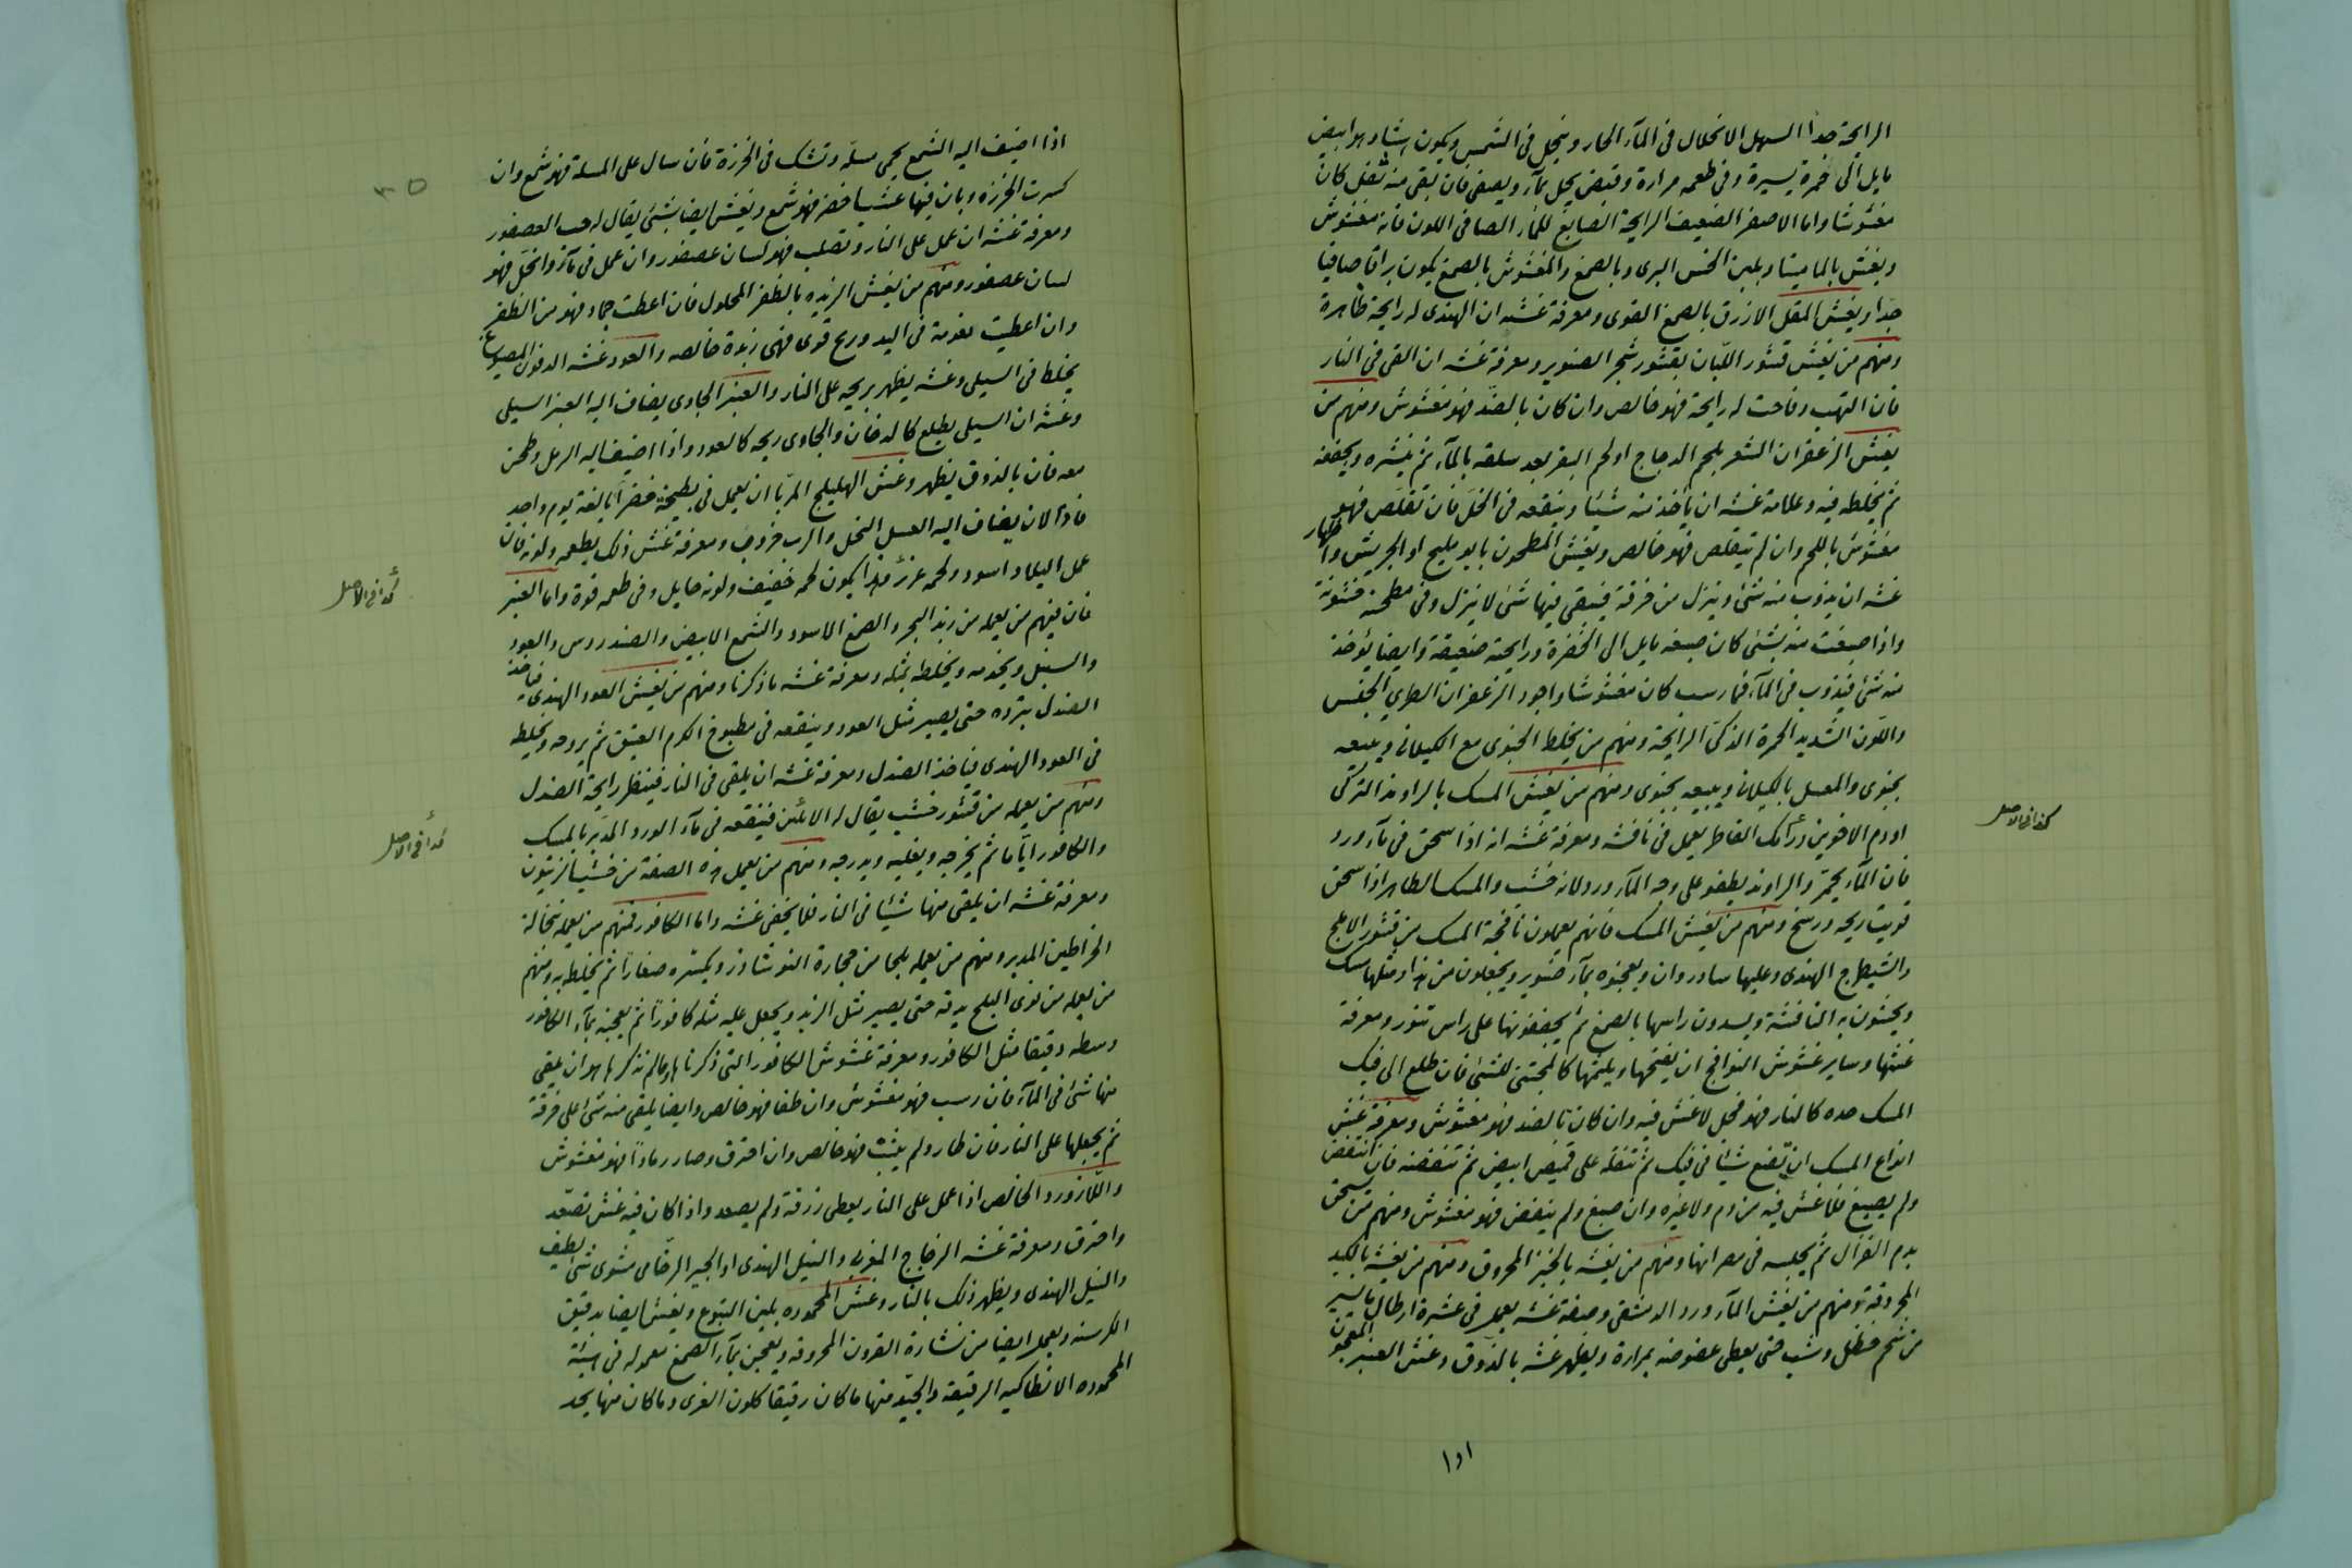 الرايحة جدا السهل الانحلال فى المآء الحار وينحل فى الشمس ويكون هشا وهو ابيض
مايل الى خمرة يسيرة وفى طعمه مرارة وقبض يحل بمآء ويصفى فان بقى منه ثفل كان
مغشوشا واما الاصفر الضعيف الرايحة الصابغ للمآء الصافى اللون فانه مغشوش
ويغش بالماميثا وبلبن الخس البرى وبالصمغ والمغشوش بالصمغ يكون براقا صافيا
جدّا ويغش المقل الازرق بالصمغ القوى ومعرفة غشه ان الهندى له رايحة ظاهرة
ومنهم من يغش قشور اللبان بقشور شجر الصنوبر ومعرفة غشه ان القى فى النار
فان التهب وفاحت له رايحة فهو خالص وان كان بالضدّ فهو مغشوش ومنهم من
يغش الزعفران الشعر بلحم الدجاج او لحم البقر بعد سلقه بالمآء ثم ينشره ويجففه
ثم يخلطه فيه وعلامة غشه ان يأخذ منه شيئا وينقعه فى الخل فان تقلص فهو
مغشوش باللحم وان لم يتقلص فهو خالص ويغش المطحون بابو مليح او الجريش واظهار
غشه ان يذوب منه شئ وينزل من خرقة فيبقى فيها شئ لا ينزل وفى مطحنه خشونة
واذا صبغت منه بشئ كان صبغه مايل الى الخضرة ورايحته ضعيفة وايضا يؤخذ
منه شئ فيذوب فى المآء فما رسب كان مغشوشا واجود الزعفران الطرى الجنس
واللون الشديد الحمرة الذكى الرايحة ومنهم من يخلط الجنوى مع الكيلانى ويبيعه
بجنوى والمعسل بالكيلانى ويبيعه بجنوى ومنهم من يغش المسك بالراوند التركى
او دم الاخوين ورامك القاطر يعمل فى نافشه ومعرفة غشه انه اذا سحق فى مآء ورد
فان المآء يحمرّ والراوند يطفو على وجه المآء ورد لانه خشب والمسك الطاهر اذا سحق
قويت ريحه ورسخ ومنهم من يغش المسك فانهم يعملون نافجة المسك من قشور الاملج
والشيطرج الهندى وعليها سادروان ويعجنوه بمآء صنوبر ويجعلون من هذا ومثلها مسك
ويحشون به النافشة ويسدون راسها بالصمغ ثم يجففونها على راس تنور ومعرفة
غشها وساير غشوش النوافج ان يفتحها ويلثمها كالمجتنى للشئ فان طلع الى فيك
المسك حده كالنار فهو فحل لا غش فيه وان كان بالضد فهو مغشوش ومعرفة غش
انواع المسك ان تضع شيئا فى فيك ثم تتفله على قميص ابيض ثم تنفضه فان انتفض
ولم يصبغ فلا غش فيه من دم ولا غيره وان صبغ ولم ينفض فهو مغشوش ومنهم من يسحق
بدم الغزال ثم يحلسه فى مصرانها ومنهم من يغشه بالخبز المحروق ومنهم من يغشه بالكبد
المحروقة ومنهم من يغش المآء ورد الدمشقى وصفة غشه يعمل فى عشرة ارطال باليسير
من شحم حنظل وشب حتى يعطى عفوصة بمرارة ويظهر غشه بالذوق وغش العنبر المعجون
اذا
كذا فى الاصل
٣٥
اذا اضيف اليه الشمع يحمى مسلّة وتشك فى الخرزة فان سال على المسلة فهو شمع وان
كسرت الخرزة وبان فيها عشبا خضر فهو شمع ويغش ايضا بشئ يقال له حب العصفور
ومعرفة غشه ان عمل على النار وتصلب فهو لسان عصفور وان عمل فى مآء وانحل فهو
لسان عصفور ومنهم من يغش الزبده بالظفر المحلول فان اعطت جماد فهو من الظفر
وان اعطيت نعومة فى اليد وريح قوى فهى زبدة خالصه والعود غشه الدفون المصبوغ
يخلط فى السيلى وغشه يظهر بريحه على النار والعنبر الجاوى يضاف اليه العنبر السيلى
وغشه ان السيلى يطلع كالدخان والجاوى ريحه كالعود واذا اضيف اليه الرمل وطحن
معه فان بالذوق يظهر وغش الهليلج المربا ان يعمل فى بطيخة خضرآ بالغة يوم واحد
فاذا لان يضاف اليه العسل النحل والرب خروب ومعرفة غش ذلك بطعمه ولونه فان
عمل البلاد اسود ولحمه غزير وهذا يكون لحمه خفيف ولونه حايل وفى طعمه قوة واما العنبر
فان فيهم من يعمله من زبد البحر والصمغ الاسود والشمع الابيض والصندروس والعود
والسنبل ويخدمه ويخلطه بمثله ومعرفة غشه ما ذكرنا ومنهم من يغش العود الهندى فياخذ
الصندل يبرده حتى يصير مثل العود وينقعه فى مطبوخ الكرم العتيق ثم يروحه ويخلطه
فى العود الهندى فياخذ الصندل ومعرفة غشه ان يلقى فى النار فيظهر رايحة الصندل
ومنهم من يعمله من قشور خشب يقال له الابلين فينقعه فى مآء الورد المدبر بالمسك
والكافور اياما ثم يخرجه ويغليه ويدرجه ومنهم من يعمل هذه الصفة من خشب الزيتون
ومعرفة غشه ان يلقى منها شيئا فى النار فلا يخفى غشه واما الكافور فمنهم من يعمله نخالة
الخراطين المدبر ومنهم من يعمله بلجا من حجارة النوشادر ويكسره صغارا ثم يخلط به ومنهم
من يعمله من نوى البلح يدقه حتى يصير مثل الزبد ويجعل عليه مثله كافورا ثم يعجنه بمآء الكافور
وسطه دقيقا مثل الكافور ومعرفة غشوش الكافور التى ذكرناها ومالم نذكرها هو ان يلقى
منها شئ فى المآء فان رسب فهو مغشوش وان طفا فهو خالص وايضا يلقى منه شئ على خرقة
ثم يجعلها على النار فان طار ولم يثبت فهو خالص وان احترق وصار رمادا فهو مغشوش
واللازورد الخالص اذا عمل على النار يعطى زرقة ولم يصعد واذا كان فيه غش تصعّد
واحترق ومعرفة غشه الزجاج المغربى والنيل الهندى او الجير الرخامى مشوى شئ لطيف
والنيل الهندى ويظهر ذلك بالنار وغش المحموده بلبن اليتوع ويغش ايضا بدقيق
الكرسنه ويعمل ايضا من نشارة القرون المحروقه ويعجن بمآء الصمغ معموله فى هيئة
المحموده الانطاكيه الرقيقة والجيد منها ما كان رقيقا كلون الغرى وما كان منها يجد
كذا فى الاصل
كذا فى الاصل